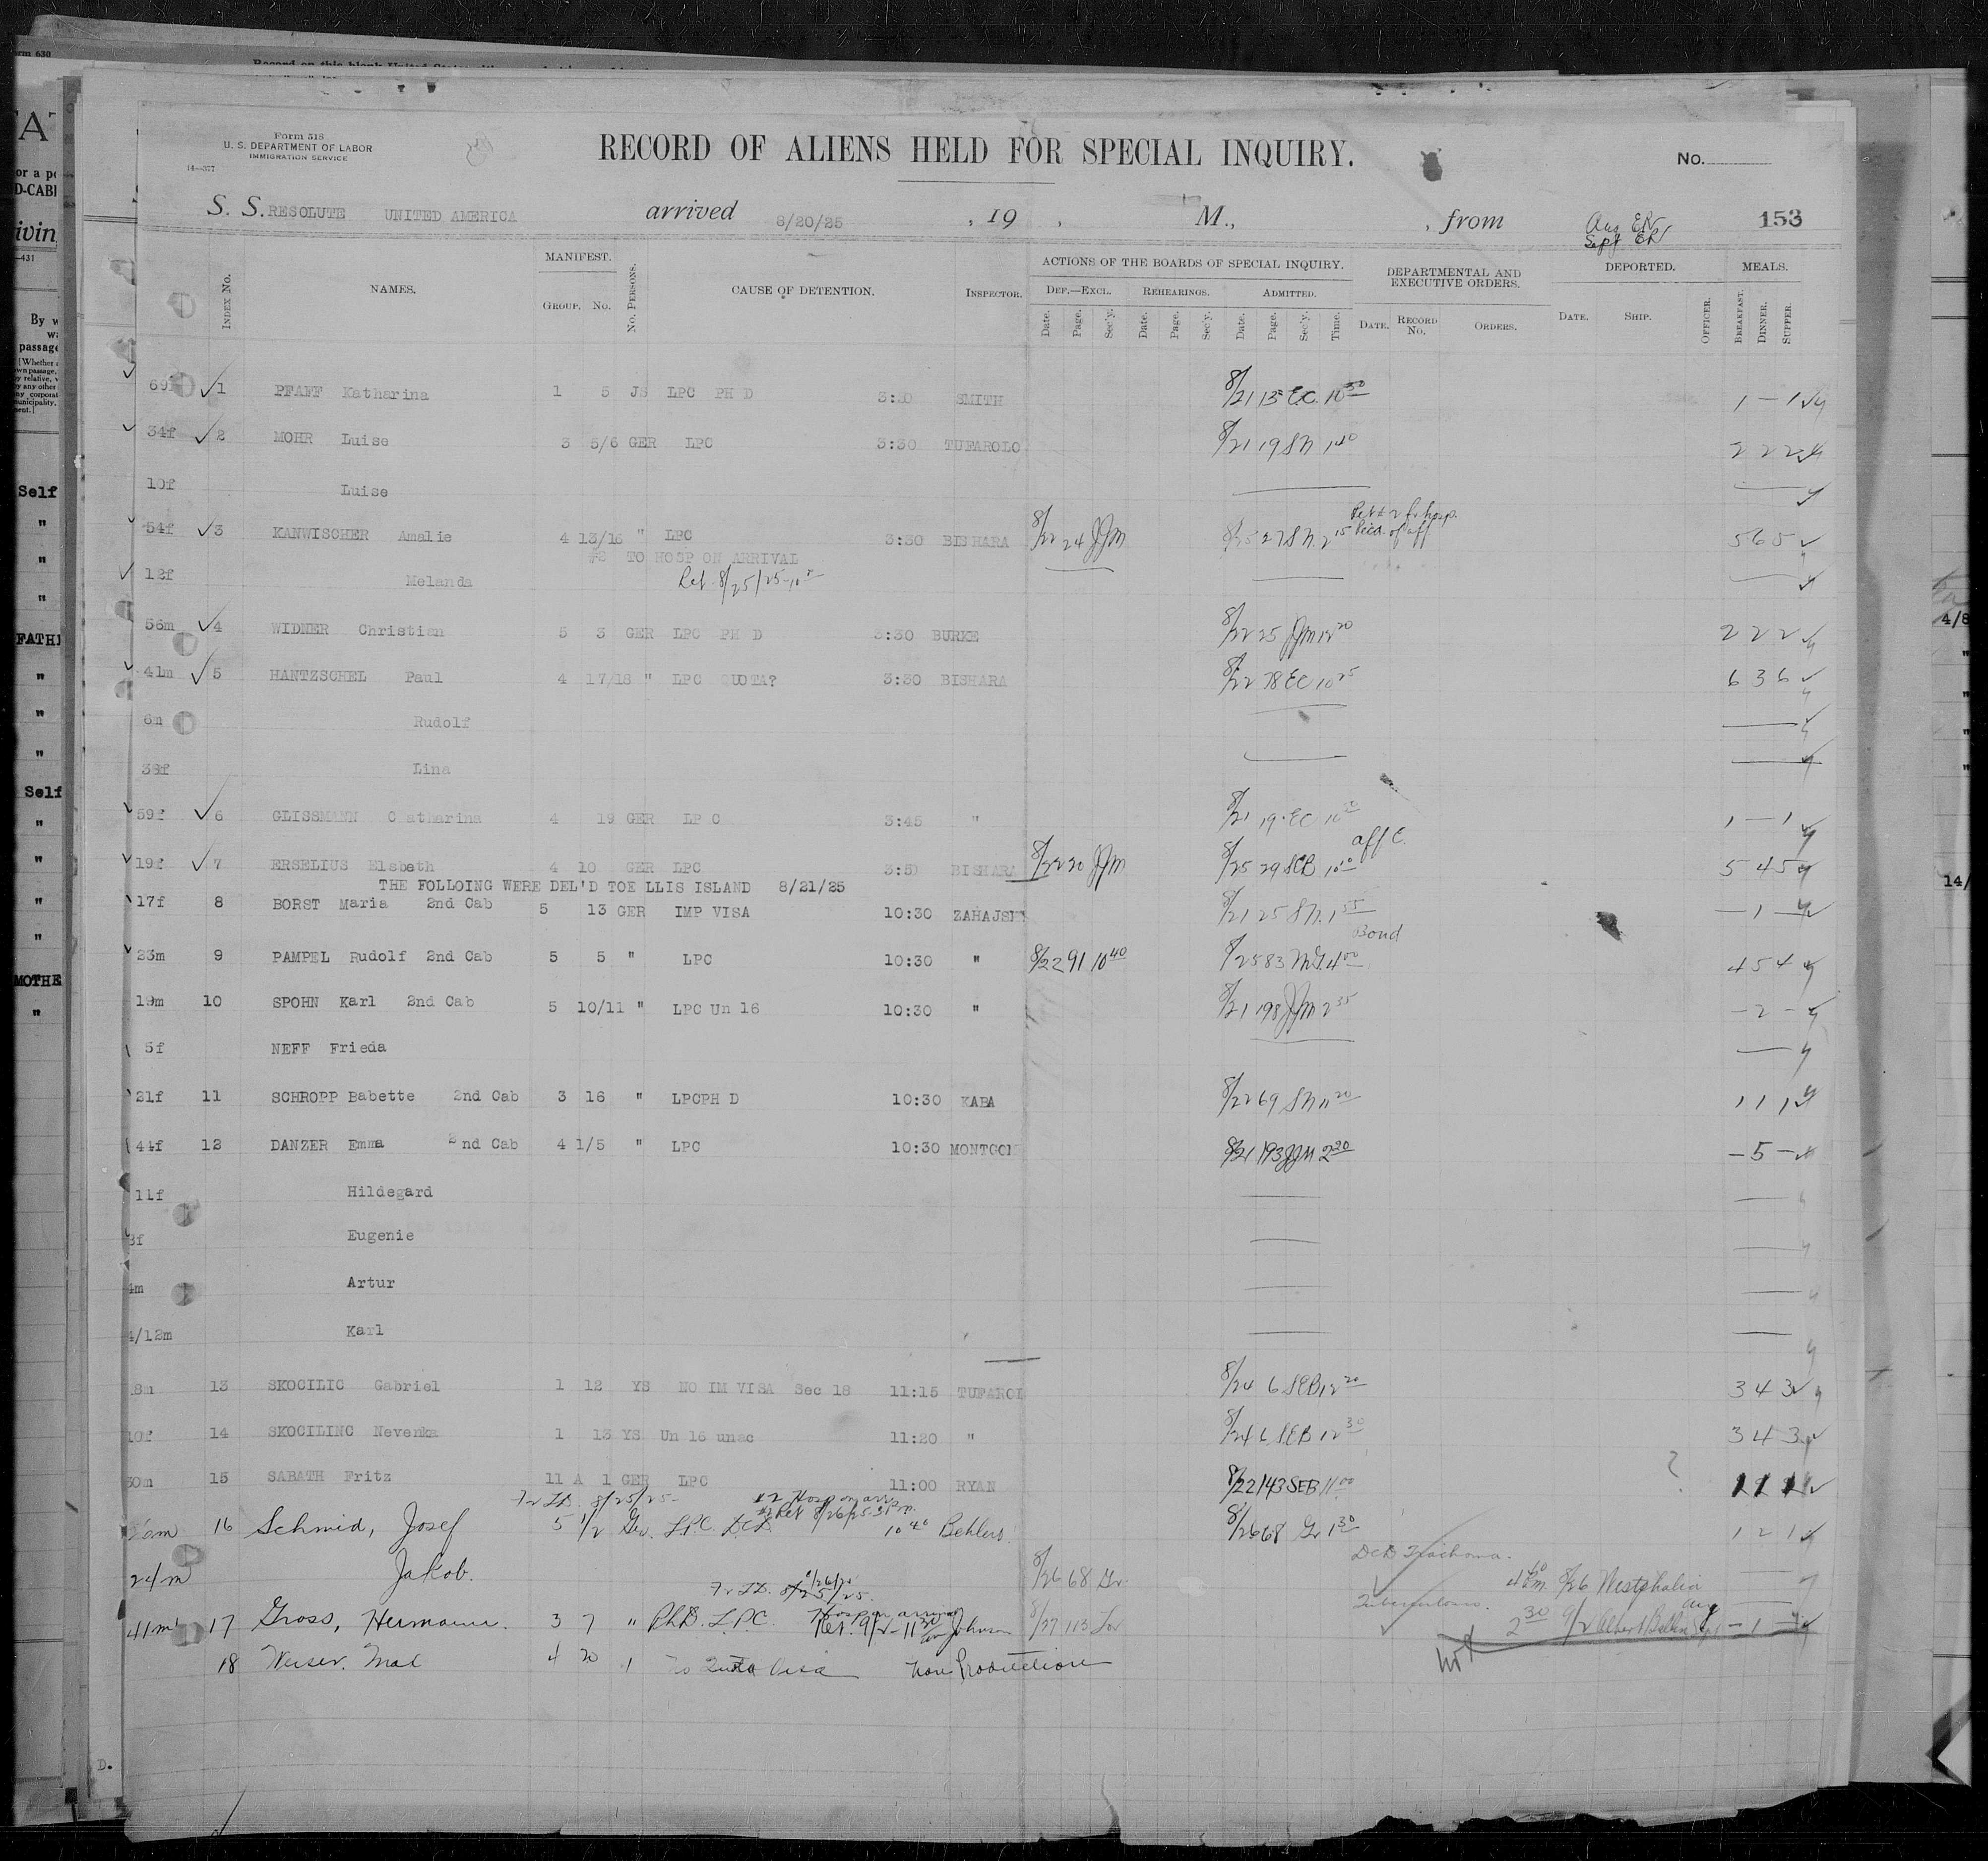 Form 630
Record on this blank United States
Form 518
U. S. DEPARTMENT OF LABOR
IMMIGRATION SERVICE
14—377
RECORD OF ALIENS HELD FOR SPECIAL INQUIRY.
No.
S. S. RESOLUTE UNITED AMERICA arrived 8/20/25 , 19 , M., , from
Aug ER
Sept ER
153
INDEX No.
NAMES.
MANIFEST.
GROUP. No.
No. PERSONS.
CAUSE OF DETENTION.
INSPECTOR.
ACTIONS OF THE BOARDS OF SPECIAL INQUIRY.
DEF.—EXCL. REHEARINGS. ADMITTED.
Date. Page. Sec'y. Date. Page. Sec'y. Date. Page. Sec'y. Time.
DEPARTMENTAL AND EXECUTIVE ORDERS.
DATE. RECORD No. ORDERS.
DEPORTED.
DATE. SHIP. OFFICER.
MEALS.
BREAKFAST. DINNER. SUPPER.
69f 1 PFAFF Katharina 1 5 JS LPC PH D 3:30 SMITH 8/21 15 E.C. 10 30 1 — 1
34f 2 MOHR Luise 3 5/6 GER LPC 3:30 TUFAROLO 8/21 19 SN 1 40 2 2 2
10f Luise
54f 3 KANWISCHER Amalie 4 13/16 " LPC 3:30 BISHARA 8/22 24 JJM 8/25 27 SN 2 15 5 6 5
#2 TO HOSP ON ARRIVAL
12f Melanda Ret 8/25/25
56m 4 WIDNER Christian 5 3 GER LPC PH D 3:30 BURKE 8/22 25 JJM 12 20 2 2 2
41m 5 HANTZSCHEL Paul 4 17/18 " LPC QUOTA? 3:30 BISHARA 8/22 78 EC 10 25 6 3 6
6m Rudolf
38f Lina
59f 6 GLISSMANN Catharina 4 19 GER LP C 3:45 " 8/21 19 EC 1 — 1
19f 7 ERSELIUS Elsbeth 4 10 GER LPC 3:50 BISHARA 8/22 20 JJM 8/25 29 SEB 10 10 aff C. 5 4 5
THE FOLLOING WERE DEL'D TOE LLIS ISLAND 8/21/25
17f 8 BORST Maria 2nd Cab 5 13 GER IMP VISA 10:30 ZAHAJSKY 8/21 25 SN 1 55 — 1 —
Bond
23m 9 PAMPEL Rudolf 2nd Cab 5 5 " LPC 10:30 " 8/22 91 10 40 8/25 83 4 00 4 5 4
19m 10 SPOHN Karl 2nd Cab 5 10/11 " LPC Un 16 10:30 " 8/21 198 JJM 2 35 — 2 —
5f NEFF Frieda
21f 11 SCHROPP Babette 2nd Cab 3 16 " LPCPH D 10:30 KABA 8/22 69 SN 11 20 1 1 1
44f 12 DANZER Emma 2nd Cab 4 1/5 " LPC 10:30 MONTGOM 8/21 193 JJM 2 20 — 5 —
11f Hildegard
8f Eugenie
4m Artur
4/12m Karl
18m 13 SKOCILIC Gabriel 1 12 YS NO IM VISA Sec 18 11:15 TUFAROL 8/24 6 SEB 12 20 3 4 3
10f 14 SKOCILINC Nevenka 1 13 YS Un 16 unac 11:20 " 8/24 6 SEB 12 30 3 4 3
30m 15 SABATH Fritz 11 A 1 GER LPC 11:00 RYAN 8/22 143 SEB 11 00 1 1 1
8/25/25 #2 Hosp on arr
Ret 8/26/25
16 Schmid, Josef 5 1/2 Ger. L.P.C. DCD 10 40 Behlers. 8/26 68 Gr 1 30 1 2 1
DCD Trachoma.
24m Jakob. 8/26 68 Gr. 8/26 Westphalia
Aug
8/25/25 Hosp on arrival
41m 17 Gross, Hermann. 3 7 " Ph.D. L.P.C. Ret. 9/2 Johnson 8/27 113 Tuberculosis. 2 30 9/2 Albert Ballin Sept — 1 —
18 Weiser, Mal 4 20 " No Quota Visa Non Production